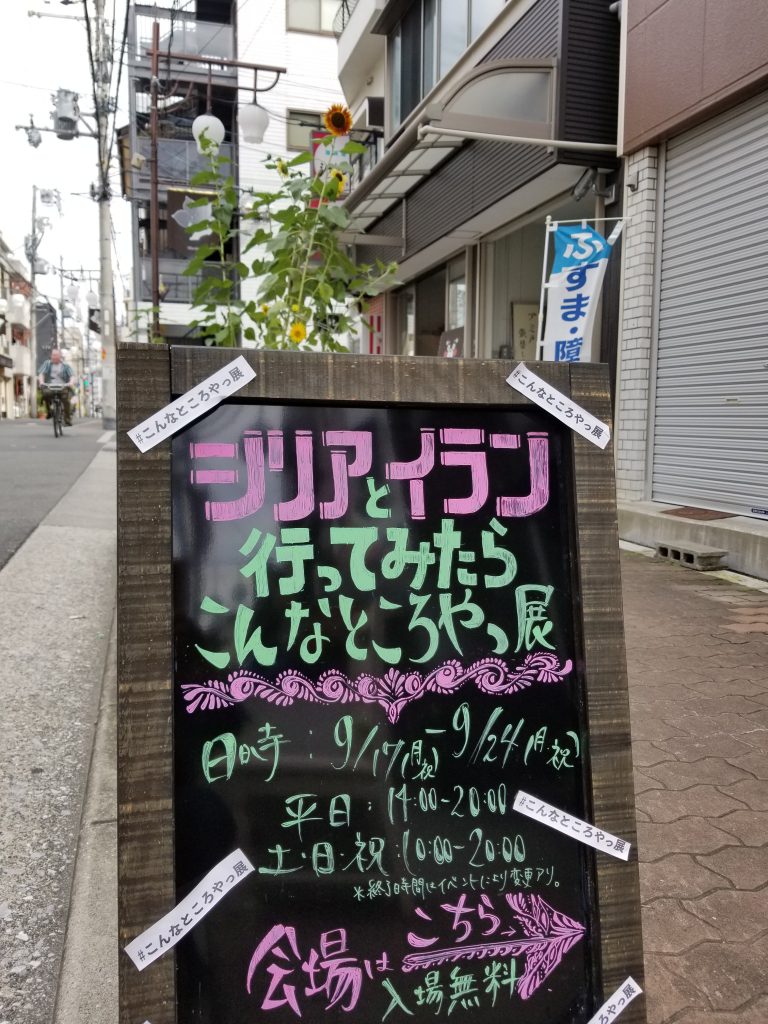 ふすま・障
#こんなところやっ展
#こんなところやっ展
シリアイラン
と
行ってみたら
こんなところやっ展
日時:9/17(月・祝)-9/24(月・祝)
平日:14:00-20:00
#こんなところやっ展
土・日・祝:10:00-20:00
※終了時間はイベントにより変更アリ。
#こんなところやっ展
会場はこちら→
入場無料
ころやっ展